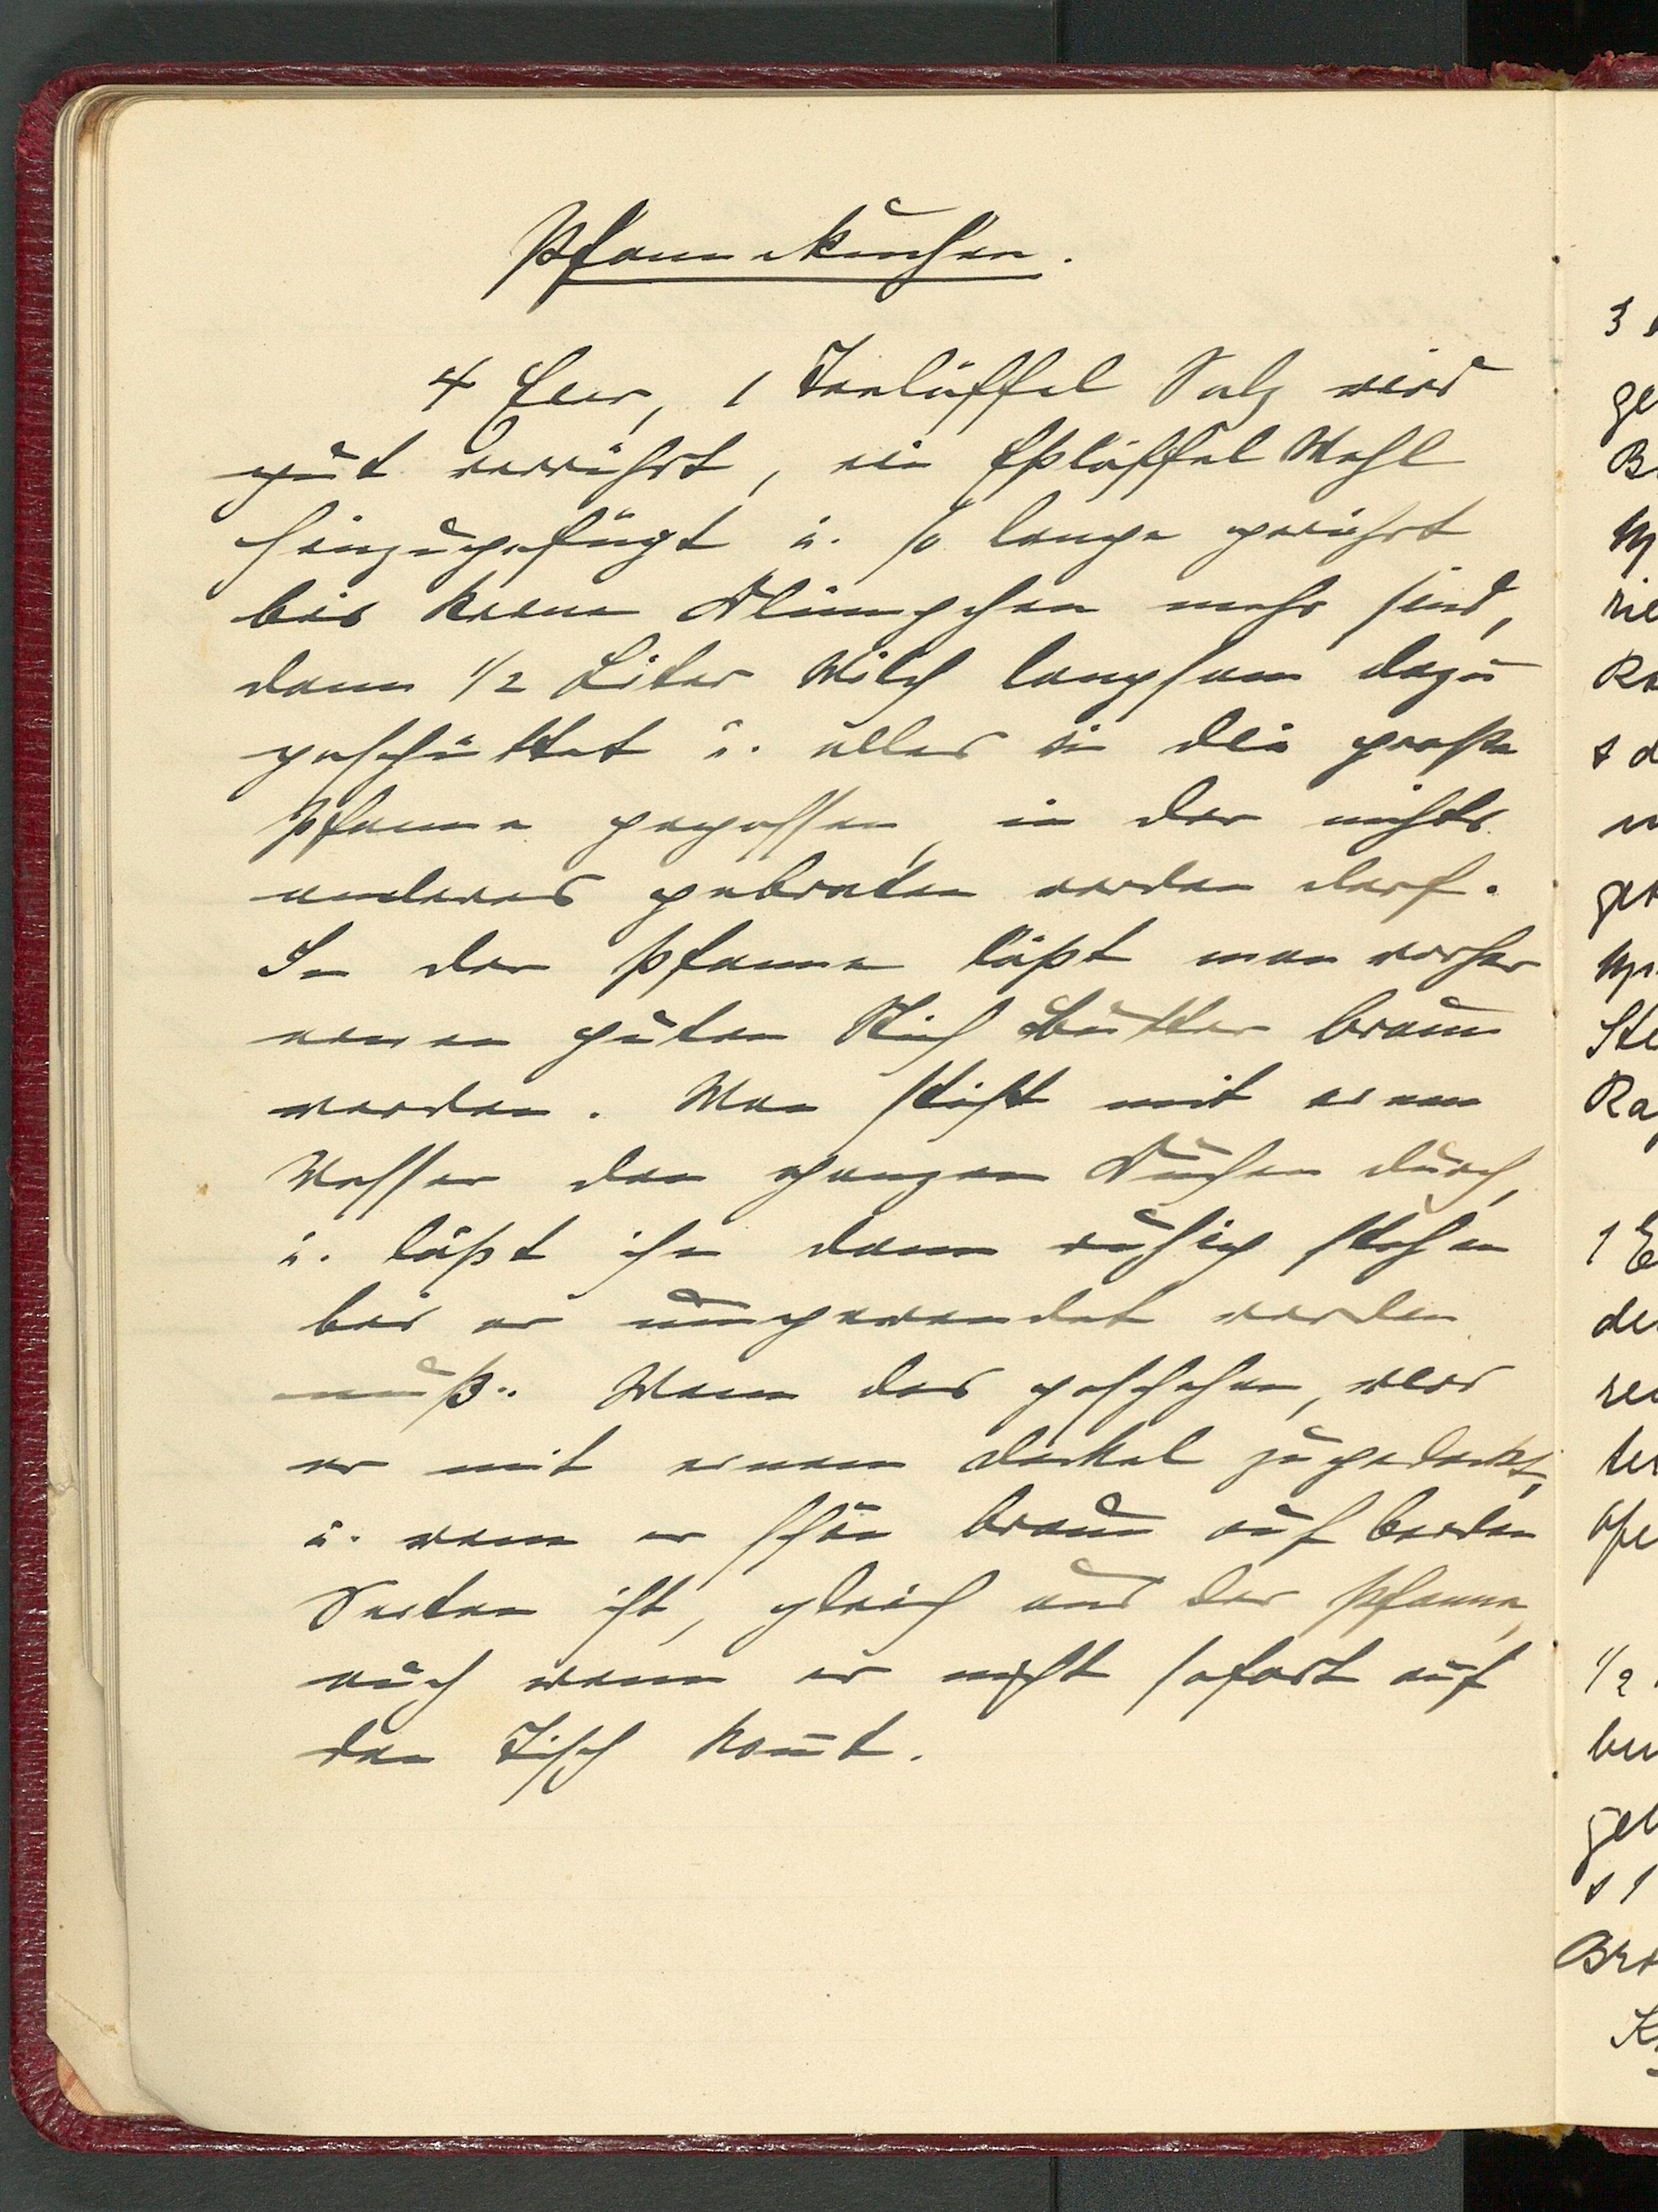 Pfannekuchen.
4 Eier, 1 Teelöffel Salz wird
gut verrührt, ein Eßlöffel Mehl
hinzugefügt u. so lange gerührt
bis keine Klümpchen mehr sind,
dann 1/2 Liter Milch langsam dazu
geschüttet u. alles in die große
Pfanne gegossen, in der nichts
anderes gebraten werden darf.
In der Pfanne läßt man vorher
einen guten Stich Butter braun
werden. Man sticht mit einem
Messer den ganzen Kuchen durch,
u. läßt ihn dann ruhig stehen
bis er umgewendet werden
muß. Wenn das geschehen, wird
er mit einem Deckel zugedeckt,
u. wenn er schön braun auf beiden
Seiten ist, gleich aus der Pfanne,
auch wenn er nicht sofort auf
den Tisch kom̅t.
3
ge
B
rie
Ra
ger
Ste
Ra
1 E
de
1/2
gel
Br